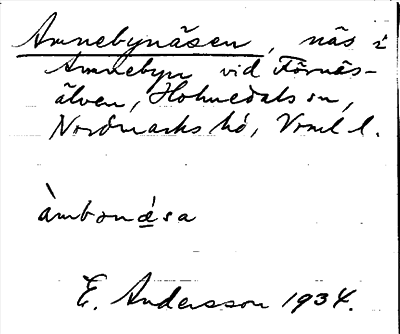 Amnebynäsen, näs i
Amnebyn vid Förnäs-
älven, Holmedals sn,
Nordmarks hd, Vrml l.
àmbonǽsa
E. Andersson 1934.